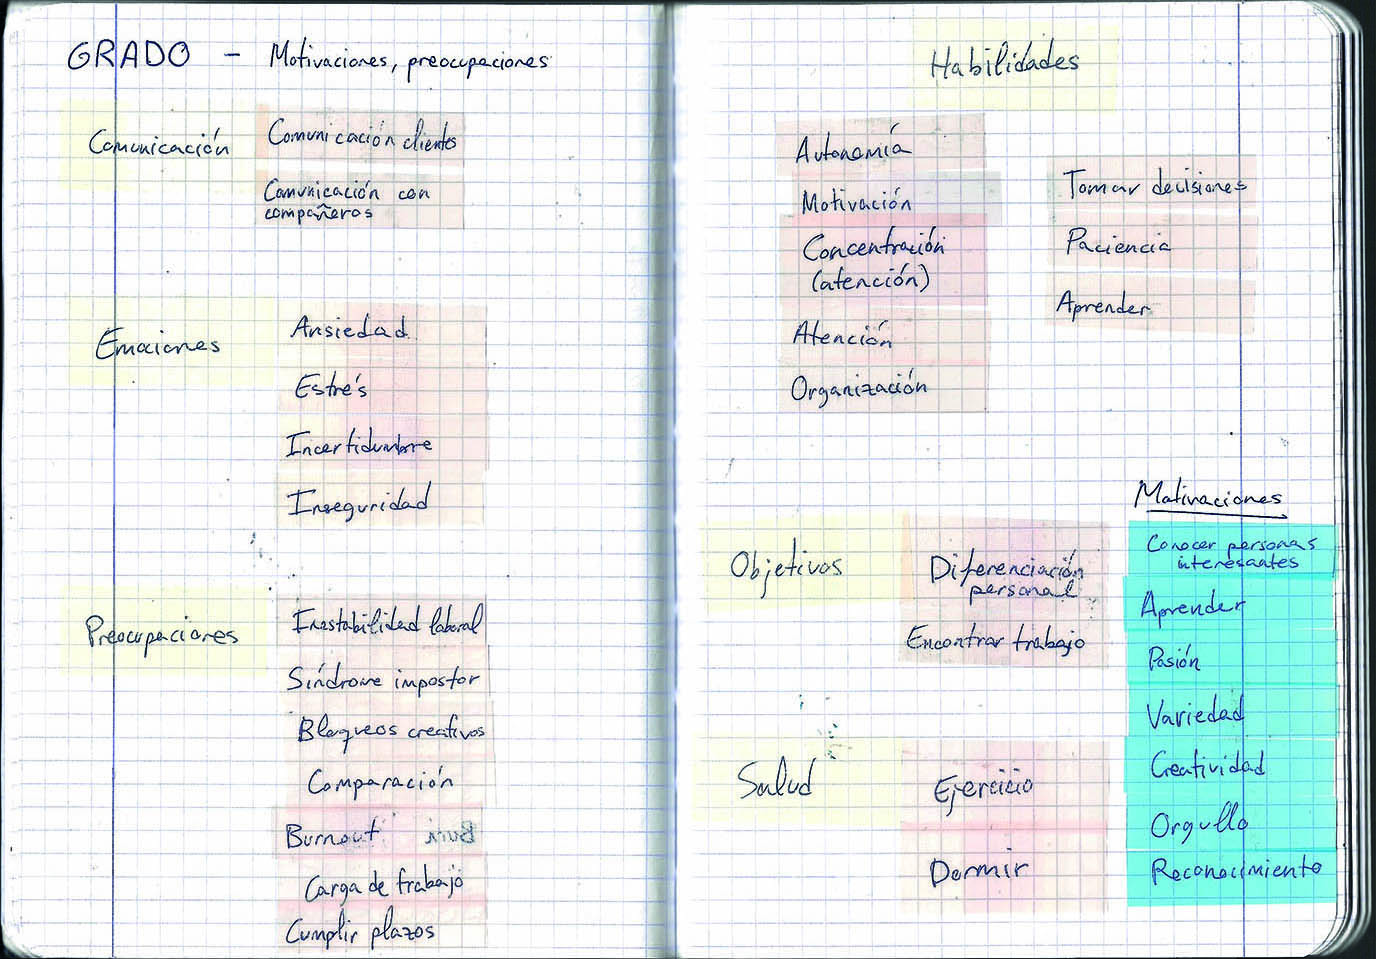 GRADO - Motivaciones, preocupaciones
Comunicación
Comunicación clientes
Comunicación con
compañeros
Emociones
Ansiedad
Estrés
Incertidumbre
Inseguridad
Preocupaciones
Inestabilidad laboral
Síndrome impostor
Bloqueos creativos
Comparación
Burnout
Carga de trabajo
Cumplir plazos
Habilidades
Autonomía
Motivación
Concentración
(atención)
Atención
Organización
Tomar decisiones
Paciencia
Aprender
Objetivos
Diferenciación
personal
Encontrar trabajo
Salud
Ejercicio
Dormir
Motivaciones
Conocer personas
interesantes
Aprender
Pasión
Variedad
Creatividad
Orgullo
Reconocimiento